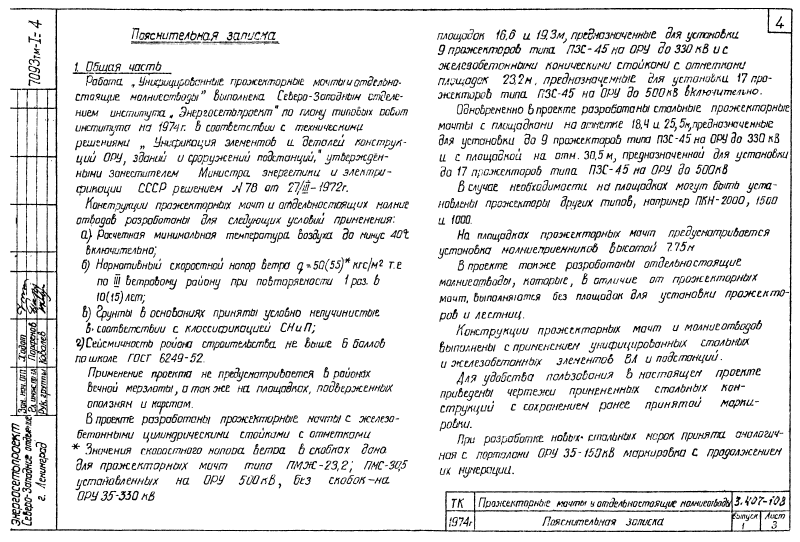 4
7093тм-I-4
Пояснительная записка
1. Общая часть
Работа „Унифицированные прожекторные мачты и отдельно-
стоящие молниеотводы" выполнена Северо-Западным отделе-
нием института „Энергосетьпроект" по плану типовых работ
института на 1974г. в соответствии с техническими
решениями „Унификация элементов и деталей конструк-
ций ОРУ, зданий и сооружений подстанций," утвержден-
ными заместителем Министра энергетики и электри-
фикации СССР решением №78 от 27/III-1972г.
Конструкции прожекторных мачт и отдельностоящих молние
отводов разработаны для следующих условий применения:
а) Расчетная минимальная температура воздуха до минус 40°С
включительно;
б) Нормативный скоростной напор ветра q=50(55)* кгс/м² т.е
по III ветровому району при повторяемости 1 раз в
10(15) лет;
в) Грунты в основаниях приняты условно непучинистые
в соответствии с классификацией СНиП;
г) Сейсмичность района строительства не выше 6 баллов
по шкале ГОСТ 6249-52.
Применение проекта не предусматривается в районах
вечной мерзлоты, а так же на площадках, подверженных
оползням и карстам.
В проекте разработаны прожекторные мачты с железо-
бетонными цилиндрическими стойками с отметками
* Значения скоростного напора ветра в скобках дано
для прожекторных мачт типа ПМЖ-23,2; ПМС-30,5
установленных на ОРУ 500кВ, без скобок-на
ОРУ 35-330 кВ
площадок 16,6 и 19,3м, предназначенные для установки
9 прожекторов типа ПЗС-45 на ОРУ до 330 кВ и с
железобетонными коническими стойками с отметками
площадок 23,2м, предназначенные для установки 17 про-
жекторов типа ПЗС-45 на ОРУ до 500кВ включительно.
Одновременно в проекте разработаны стальные прожекторные
мачты с площадками на отметке 18,4 и 25,5м, предназначенные
для установки до 9 прожекторов типа ПЗС-45 на ОРУ до 330 кВ
и с площадкой на отм. 30,5м, предназначенной для установки
до 17 прожекторов типа ПЗС-45 на ОРУ до 500кВ
В случае необходимости на площадках могут быть уста-
новлены прожекторы других типов, например ПКН-2000, 1500
и 1000.
На площадках прожекторных мачт предусматривается
установка молниеприемников высотой 7.75м
В проекте также разработаны отдельностоящие
молниеотводы, которые, в отличие от прожекторных
мачт, выполняются без площадок для установки прожекто-
ров и лестниц.
Конструкции прожекторных мачт и молниеотводов
выполнены с применением унифицированных стальных
и железобетонных элементов ВЛ и подстанций.
Для удобства пользования в настоящем проекте
приведены чертежи примененных стальных кон-
струкций с сохранением ранее принятой марки-
ровки.
При разработке новых стальных марок принята аналогич-
ная с порталами ОРУ 35-150кВ маркировка с продолжением
их нумерации.
Энергосетьпроект
Северо-Западное отделение
г. Ленинград
Рук. группы Ковалев
ТК Прожекторные мачты и отдельностоящие молниеотводы 3.407-108
1974г Пояснительная записка Выпуск 1 Лист 3